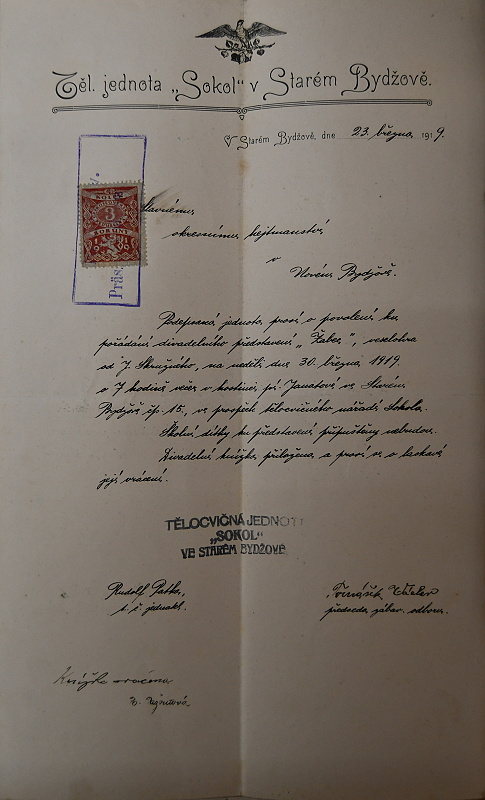 Těl. jednota „Sokol“ v Starém Bydžově.
V Starém Bydžově, dne 23. března 1919.
Präs.
KOLEK
3
KORUNY
1919
Slavnému
okresnímu hejtmanství
v
Novém Bydžově.
Podepsaná jednota prosí o povolení ku
pořádání divadelního představení „Žabec“, veselohra
od J. Skružného, na neděli dne 30. března 1919.
o 7 hodině večer v hostinci pí Janatové ve Starém
Bydžově čp. 15., ve prospěch tělocvičného nářadí Sokola.
Školní dítky ku představení připuštěny nebudou.
Divadelní knížka přiložena a prosí se o laskavé
její vrácení.
TĚLOCVIČNÁ JEDNOTA
„SOKOL“
VE STARÉM BYDŽOVĚ
Rudolf Patka,
t. č. jednatel.
předseda zábav. odboru.
Knížka vrácena